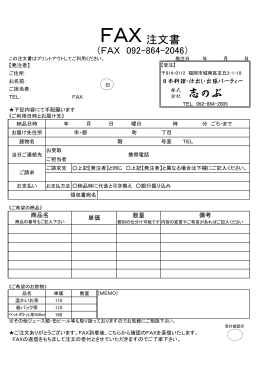 FAX注文書
（FAX 092-864-2046）
この注文書はプリントアウトしてご利用ください。 発注日 年 月 日
【発注者】
ご住所：
お名前：
ご担当者：
TEL： FAX：
印
【受注】
〒814-0113 福岡市城南区友丘3-1-18
日本料理・仕出し・出張パーティー
株式会社 志のぶ
TEL 092-864-2005
★下記内容にて手配願います
（ご利用日時とお届け先）
納品日時 年 月 日 曜日 時 分 ごろ・まで
お届け先住所 市・郡 町 丁目
建物名 階 号室 TEL
当日ご連絡先 お受取 ご担当者 携帯電話
ご請求 ご請求先 〇上記【発注者】と同じ 〇上記【発注者】と異なる場合は下欄にご記入ください。
お支払い お支払方法 〇納品時に代金と引き換え 〇銀行振り込み
領収書宛名
（ご希望の商品）
商品名 商品の番号もご記入下さい 単価 数量 個別の仕分け可能です 備考 内容の変更やご希望があればご記入ください。
（ご希望のお飲物）
品名 単価 数量 【MEMO】
温かいお茶 110
紙パック茶 110
ペットボトル茶500ml 160
※その他ジュース類・缶ビール等も取り扱っておりますのでお気軽にご相談下さい。
受付確認印
★ご注文ありがとうございます。FAX到着後、こちらから確認のFAXを返信いたします。
FAXの返信をもちまして注文の受付とさせていただきますのでご了承下さい。